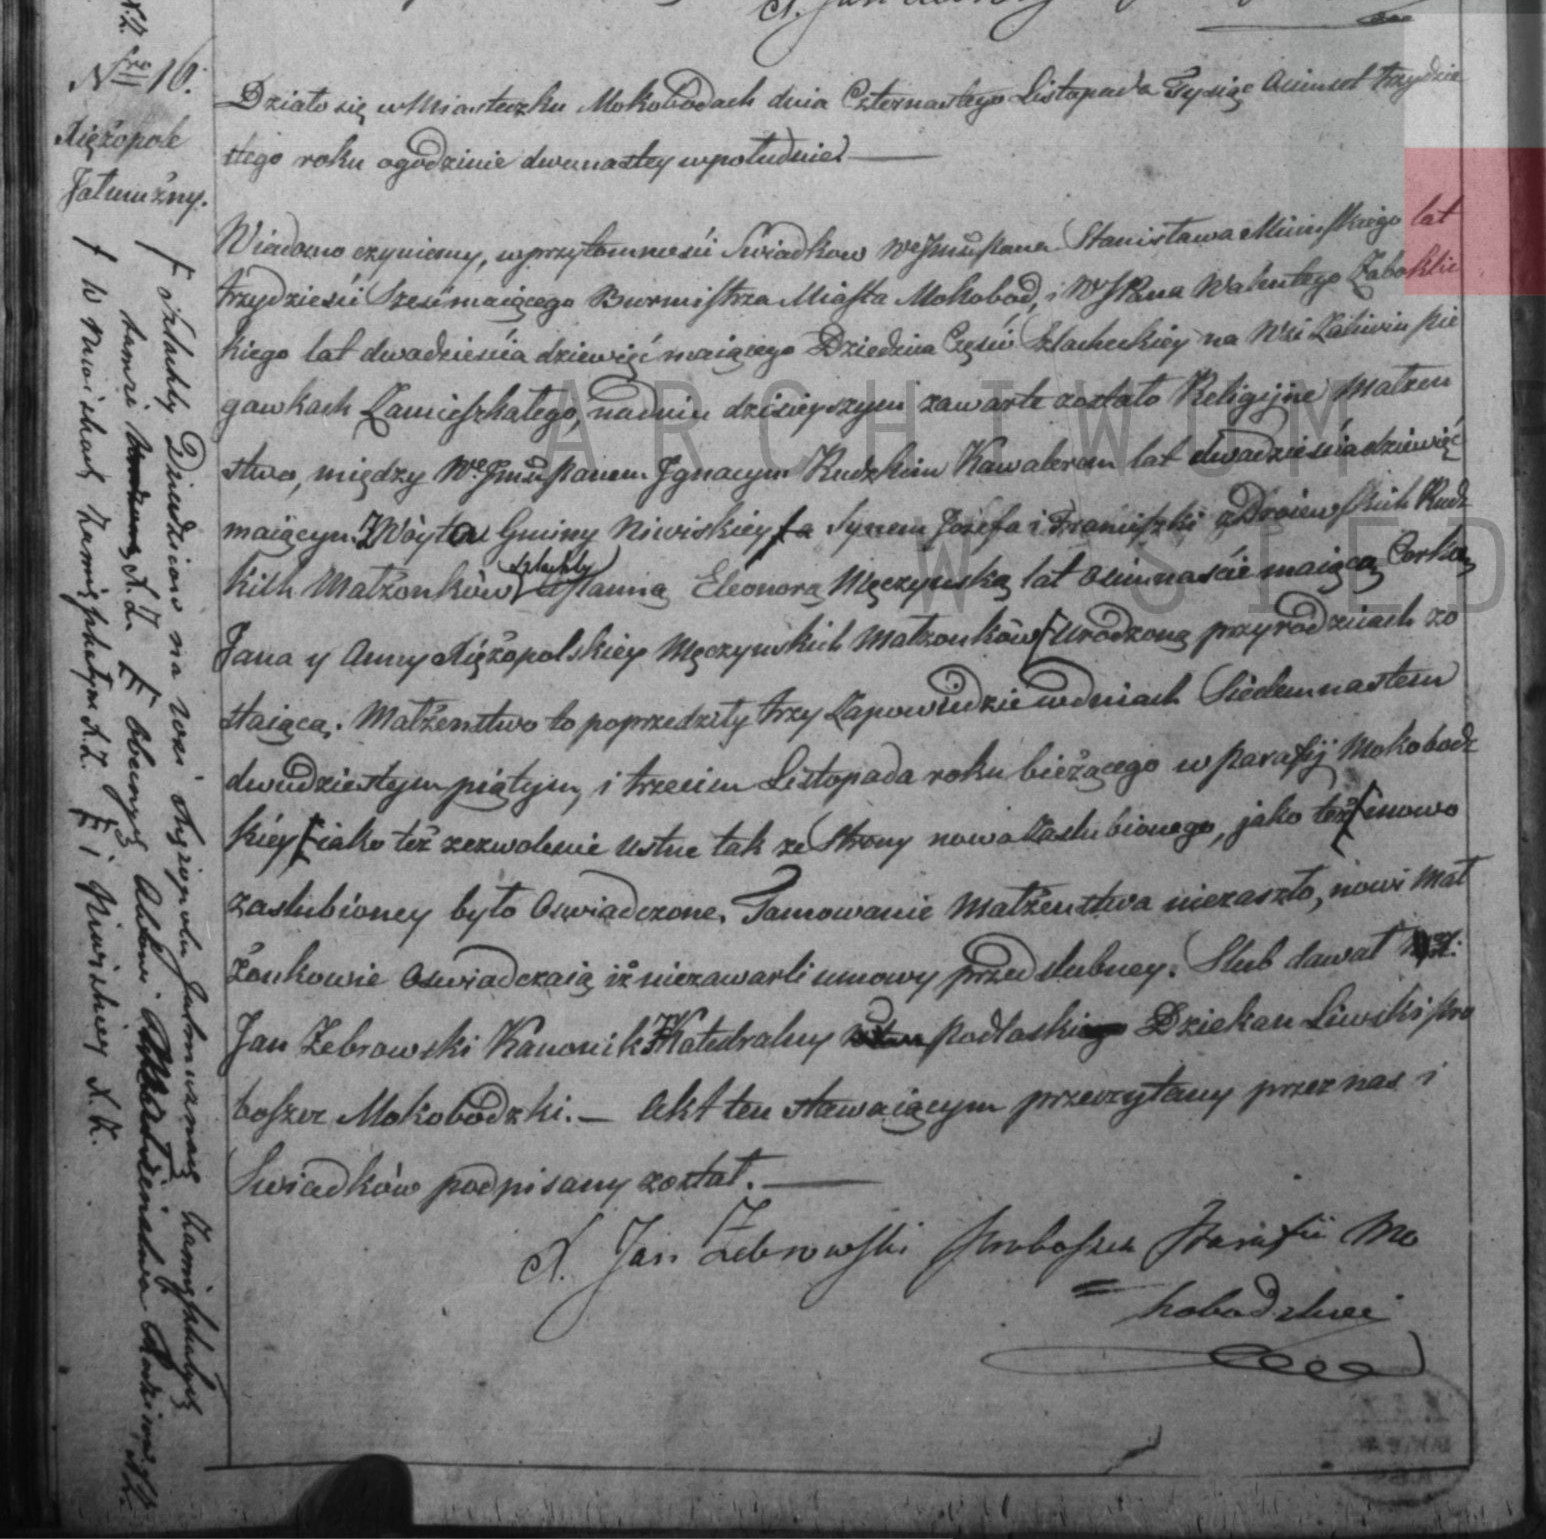 Nro 16.
Xiężopole
Jałmużny.
Działo się w Miasteczku Mokobodach dnia Czternastego Listopada Tysiąc Ośmset trzydzie
stego roku o godzinie dwunastey w południe.
Wiadomo czyniemy, w przytomności Swiadkow Stanisława Mininskiego lat
trzydzieści Sześć maiącego Burmistrza Miasta Mokobod, i Walentego Zabokli
kiego lat dwadzieścia dziewięć maiącego Dziedzica Części Szlacheckiey na Wsi
gawkach Zamieszkałego, na dniu dzisieyszym zawarte zostało Religijne Małżen
stwo, między Ignacym Rudzkim Kawalerem lat dwadzieścia dziewięć
maiącym Wóyta Gminy Niwiskiey Synem Józefa i Franciszki z Rudz
kich Małżonków Szlachty a Panną Eleonorą Męczynską lat Ośmnaście maiącą Corką
Jana y Anny Xiężopolskiey Męczynskich Małżonków Urodzoną przy rodzicach zo
staiącą. Małżeństwo to poprzedziły trzy Zapowiedzie w dniach Siedemnastem
dwudziestym piątym, i trzecim Listopada roku bieżącego w Parafij Mokobodz
kiéy iako też zezwolenie ustne tak ze Strony nowo Zaślubionego, jako też nowo
zaslubioney było Oswiadczone. Tamowanie Małżeństwa niezaszło, nowi Mał
żonkowie Oswiadczaią iż niezawarli umowy przedślubney. Slub dawał X.
Jan Zebrowski Kanonik Katedralny Podlaski Dziekan Liwski Pro
boszcz Mokobodzki. — Akt ten stawaiącym przeczytany przez nas i
Swiadków podpisany został.
X. Jan Zebrowski Proboszcz Parafii Mo
kobodzkiei
Szlachty Dziedziców na wsi Xiężopolu Jałmużnach Zamieszkałych
tamże X. Z. Obecnych Aktowi Małżeństwa
w Niwiskach Zamieszkałym X. Z. i Niwiskiey X. Z.
ARCHIWUM P
W SIED